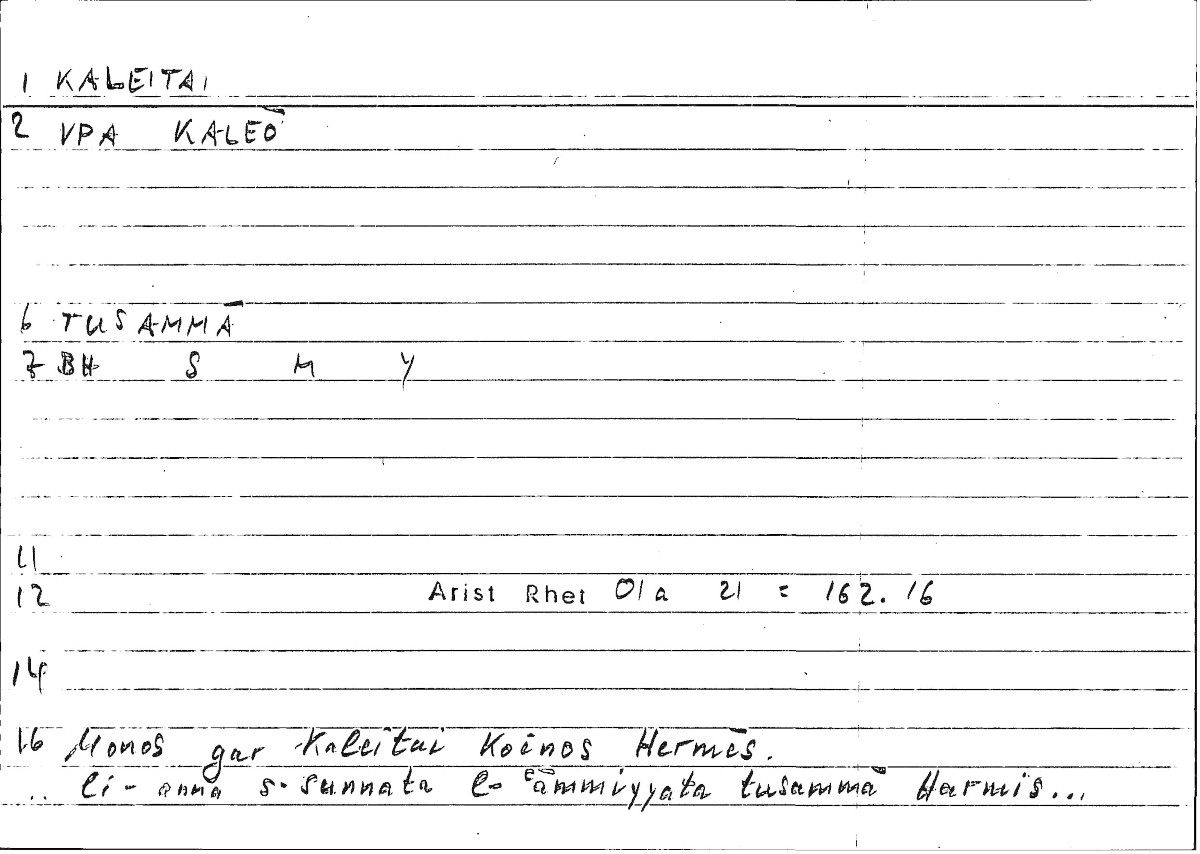 1 KALEITAI
2 VPA KALEŌ
6 TUSAMMĀ
7 BH S M Y
11
12 Arist Rhet 01a 21 = 162.16
14
16 Monos gar kaleitai Koinos Hermēs.
.. li-anna s-sunnata l-ʿāmmiyyata tusammā Harmis...